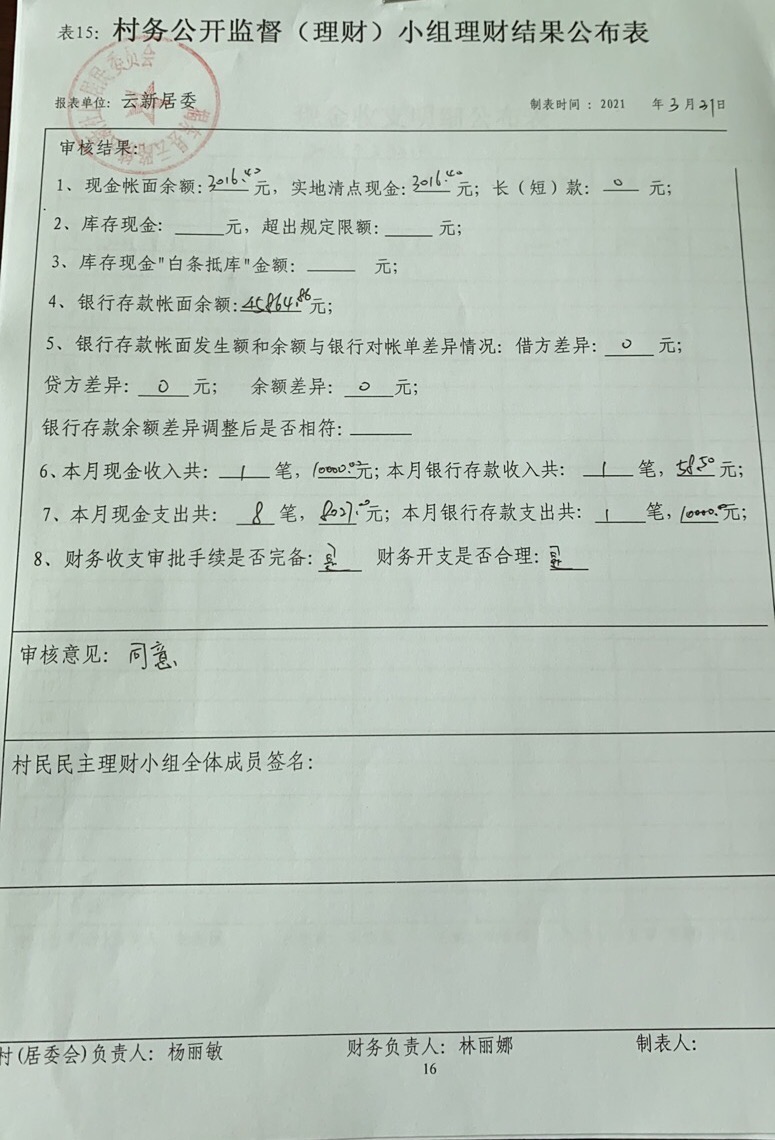 表15：村务公开监督（理财）小组理财结果公布表
居民委员会
报表单位：云新居委 制表时间：2021 年3月31日
审核结果：
1、现金帐面余额：3016.40元，实地清点现金：3016.40元；长（短）款：0元；
2、库存现金：____元，超出规定限额：____元；
3、库存现金"白条抵库"金额：____ 元；
4、银行存款帐面余额：45864.86元；
5、银行存款帐面发生额和余额与银行对帐单差异情况：借方差异：0元；
贷方差异：0元； 余额差异：0元；
银行存款余额差异调整后是否相符：____
6、本月现金收入共：1笔，10000.00元；本月银行存款收入共：1笔，58.50元；
7、本月现金支出共：8笔，8027.00元；本月银行存款支出共：1笔，10000.00元；
8、财务收支审批手续是否完备：是 财务开支是否合理：是
审核意见：同意
村民民主理财小组全体成员签名：
村(居委会)负责人：杨丽敏 财务负责人：林丽娜 制表人：
16